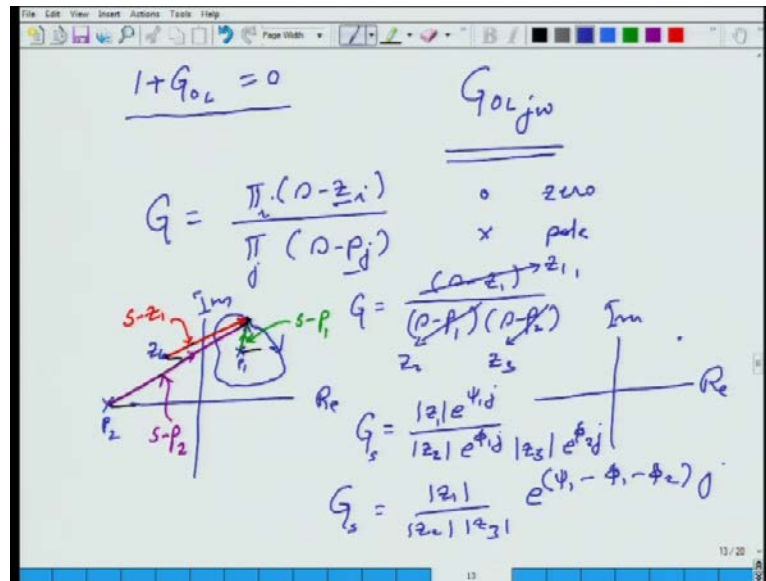 File Edit View Insert Actions Tools Help
Page Width
1+G_{OL} = 0
G_{OL jω}
G = π_i (s-z_i) / π_j (s-p_j)
o zero
x pole
G = (s-z_1) / (s-p_1)(s-p_2)
z_1,
z_2 z_3
Im
s-z_1
s-p_1
z_1
p_1
Re
p_2
s-p_2
Im
Re
G_s = |z_1| e^{ψ_1 j} / |z_2| e^{φ_1 j} |z_3| e^{φ_2 j}
G_s = |z_1| / |z_2| |z_3| e^{(ψ_1 - φ_1 - φ_2) j}
13/20
13